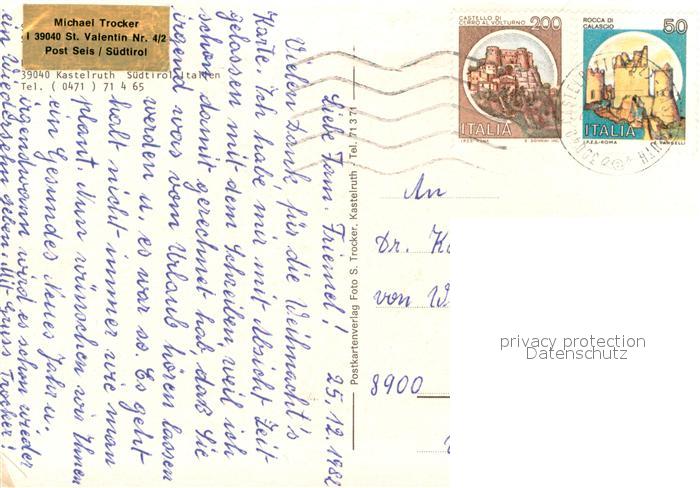 Michael Trocker
I 39040 St. Valentin Nr. 4/2
Post Seis / Südtirol
39040 Kastelruth Südtirol, Italien
Tel. ( 0471 ) 71 4 65
25.12.1982
Liebe Fam. Friemel!
Vielen Dank, für die Weihnacht's
Karte. Ich habe mir mit Absicht Zeit
gelassen mit dem Schreiben, weil ich
schon damit gerechnet hab, daß Sie
irgend was vom Urlaub hören lassen
werden u. es war so. Es geht
halt nicht immer wie man
plant. Nun wünschen wir Ihnen
ein Gesundes Neues Jahr u.
irgendwann wird es schon wieder
ein Wiedersehn geben. Mit Gruss Trocker!
Postkartenverlag Foto S. Trocker, Kastelruth - Tel. 71 3 71
CASTELLO DI
CERRO AL VOLTURNO
200
ITALIA
I.P.Z.S.-ROMA
ROCCA DI
CALASCIO
50
ITALIA
I.P.Z.S.-ROMA
An
Dr.
von
8900
privacy protection
Datenschutz